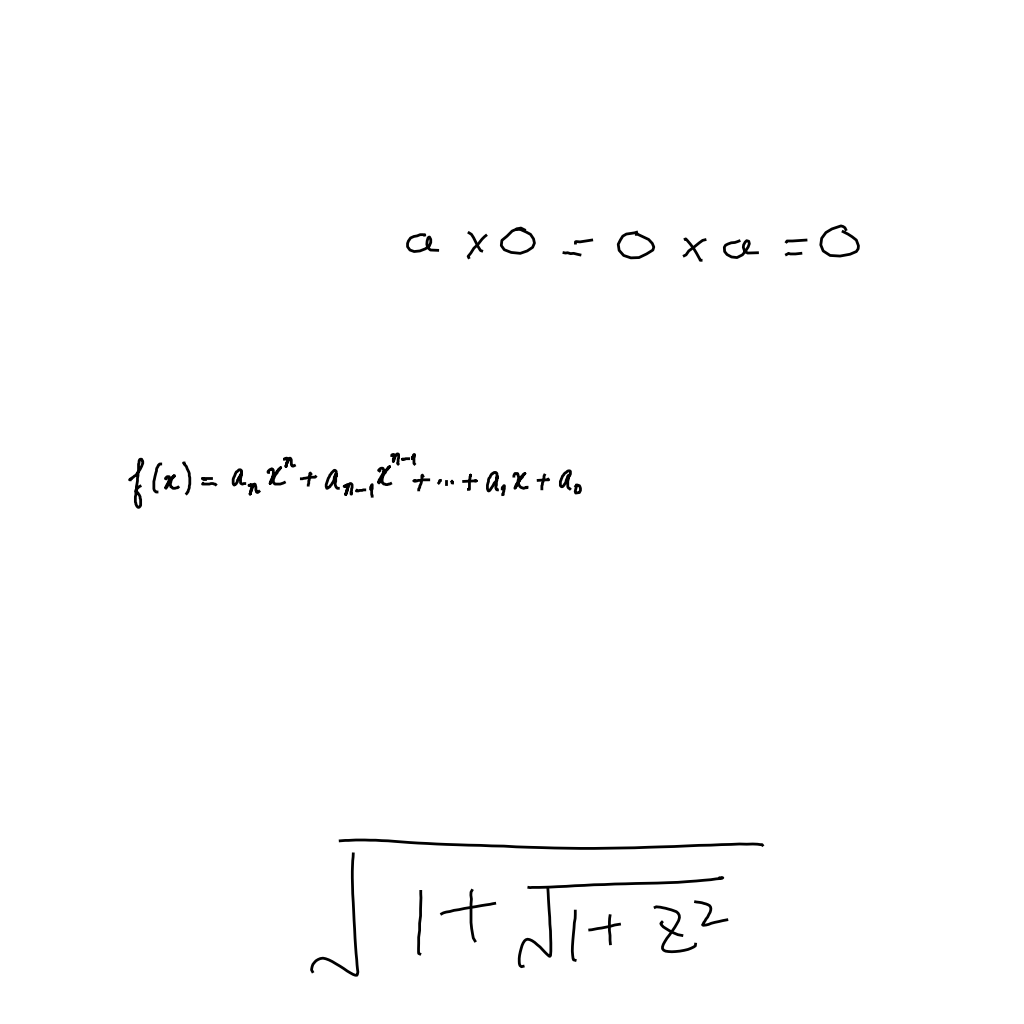 a × 0 = 0 × a = 0
f(x) = a_n x^n + a_{n-1} x^{n-1} + ... + a_1 x + a_0
\sqrt{1 + \sqrt{1 + z^2}}